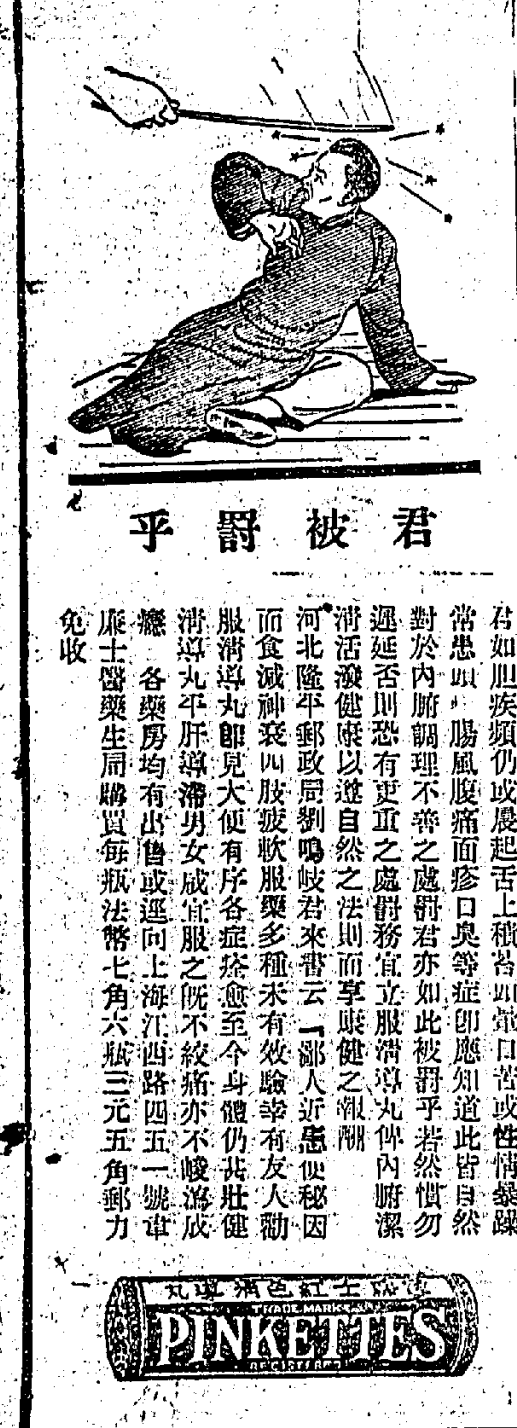 君被罰乎
君如胆疾頻仍或晨起舌上積苔頭暈口苦或性情暴躁
常患頭 腸風腹痛面疹口臭等症卽應知道此皆自然
對於內腑調理不善之處罰君亦如此被罰乎若然愼勿
遲延否則恐有更重之處罰務宜立服淸導丸俾內腑潔
淸活潑健康以遵自然之法則而享康健之報酬
河北隆平郵政局劉鳴岐君來書云「鄙人近患便秘因
而食減神衰四肢疲軟服藥多種未有效驗幸有友人勸
服淸導丸卽見大便有序各症痊愈至今身體仍甚壯健
淸導丸平肝導滯男女咸宜服之旣不絞痛亦不峻瀉成
癮 各藥房均有出售或逕向上海江西路四五一號韋
廉士醫藥生局購買每瓶法幣七角六瓶三元五角郵力
免收
韋廉士紅色淸導丸
TRADE MARK
PINKETTES
REGISTERED